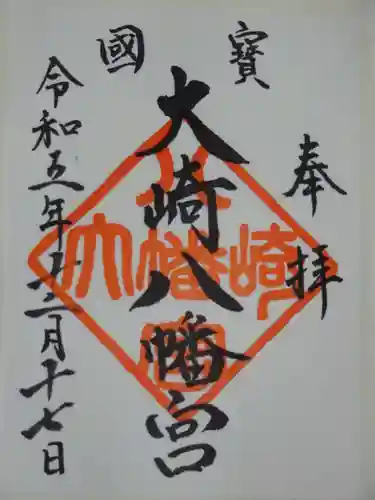 奉拝
國寳
大崎八幡宮
令和五年十二月十七日
大崎八幡宮